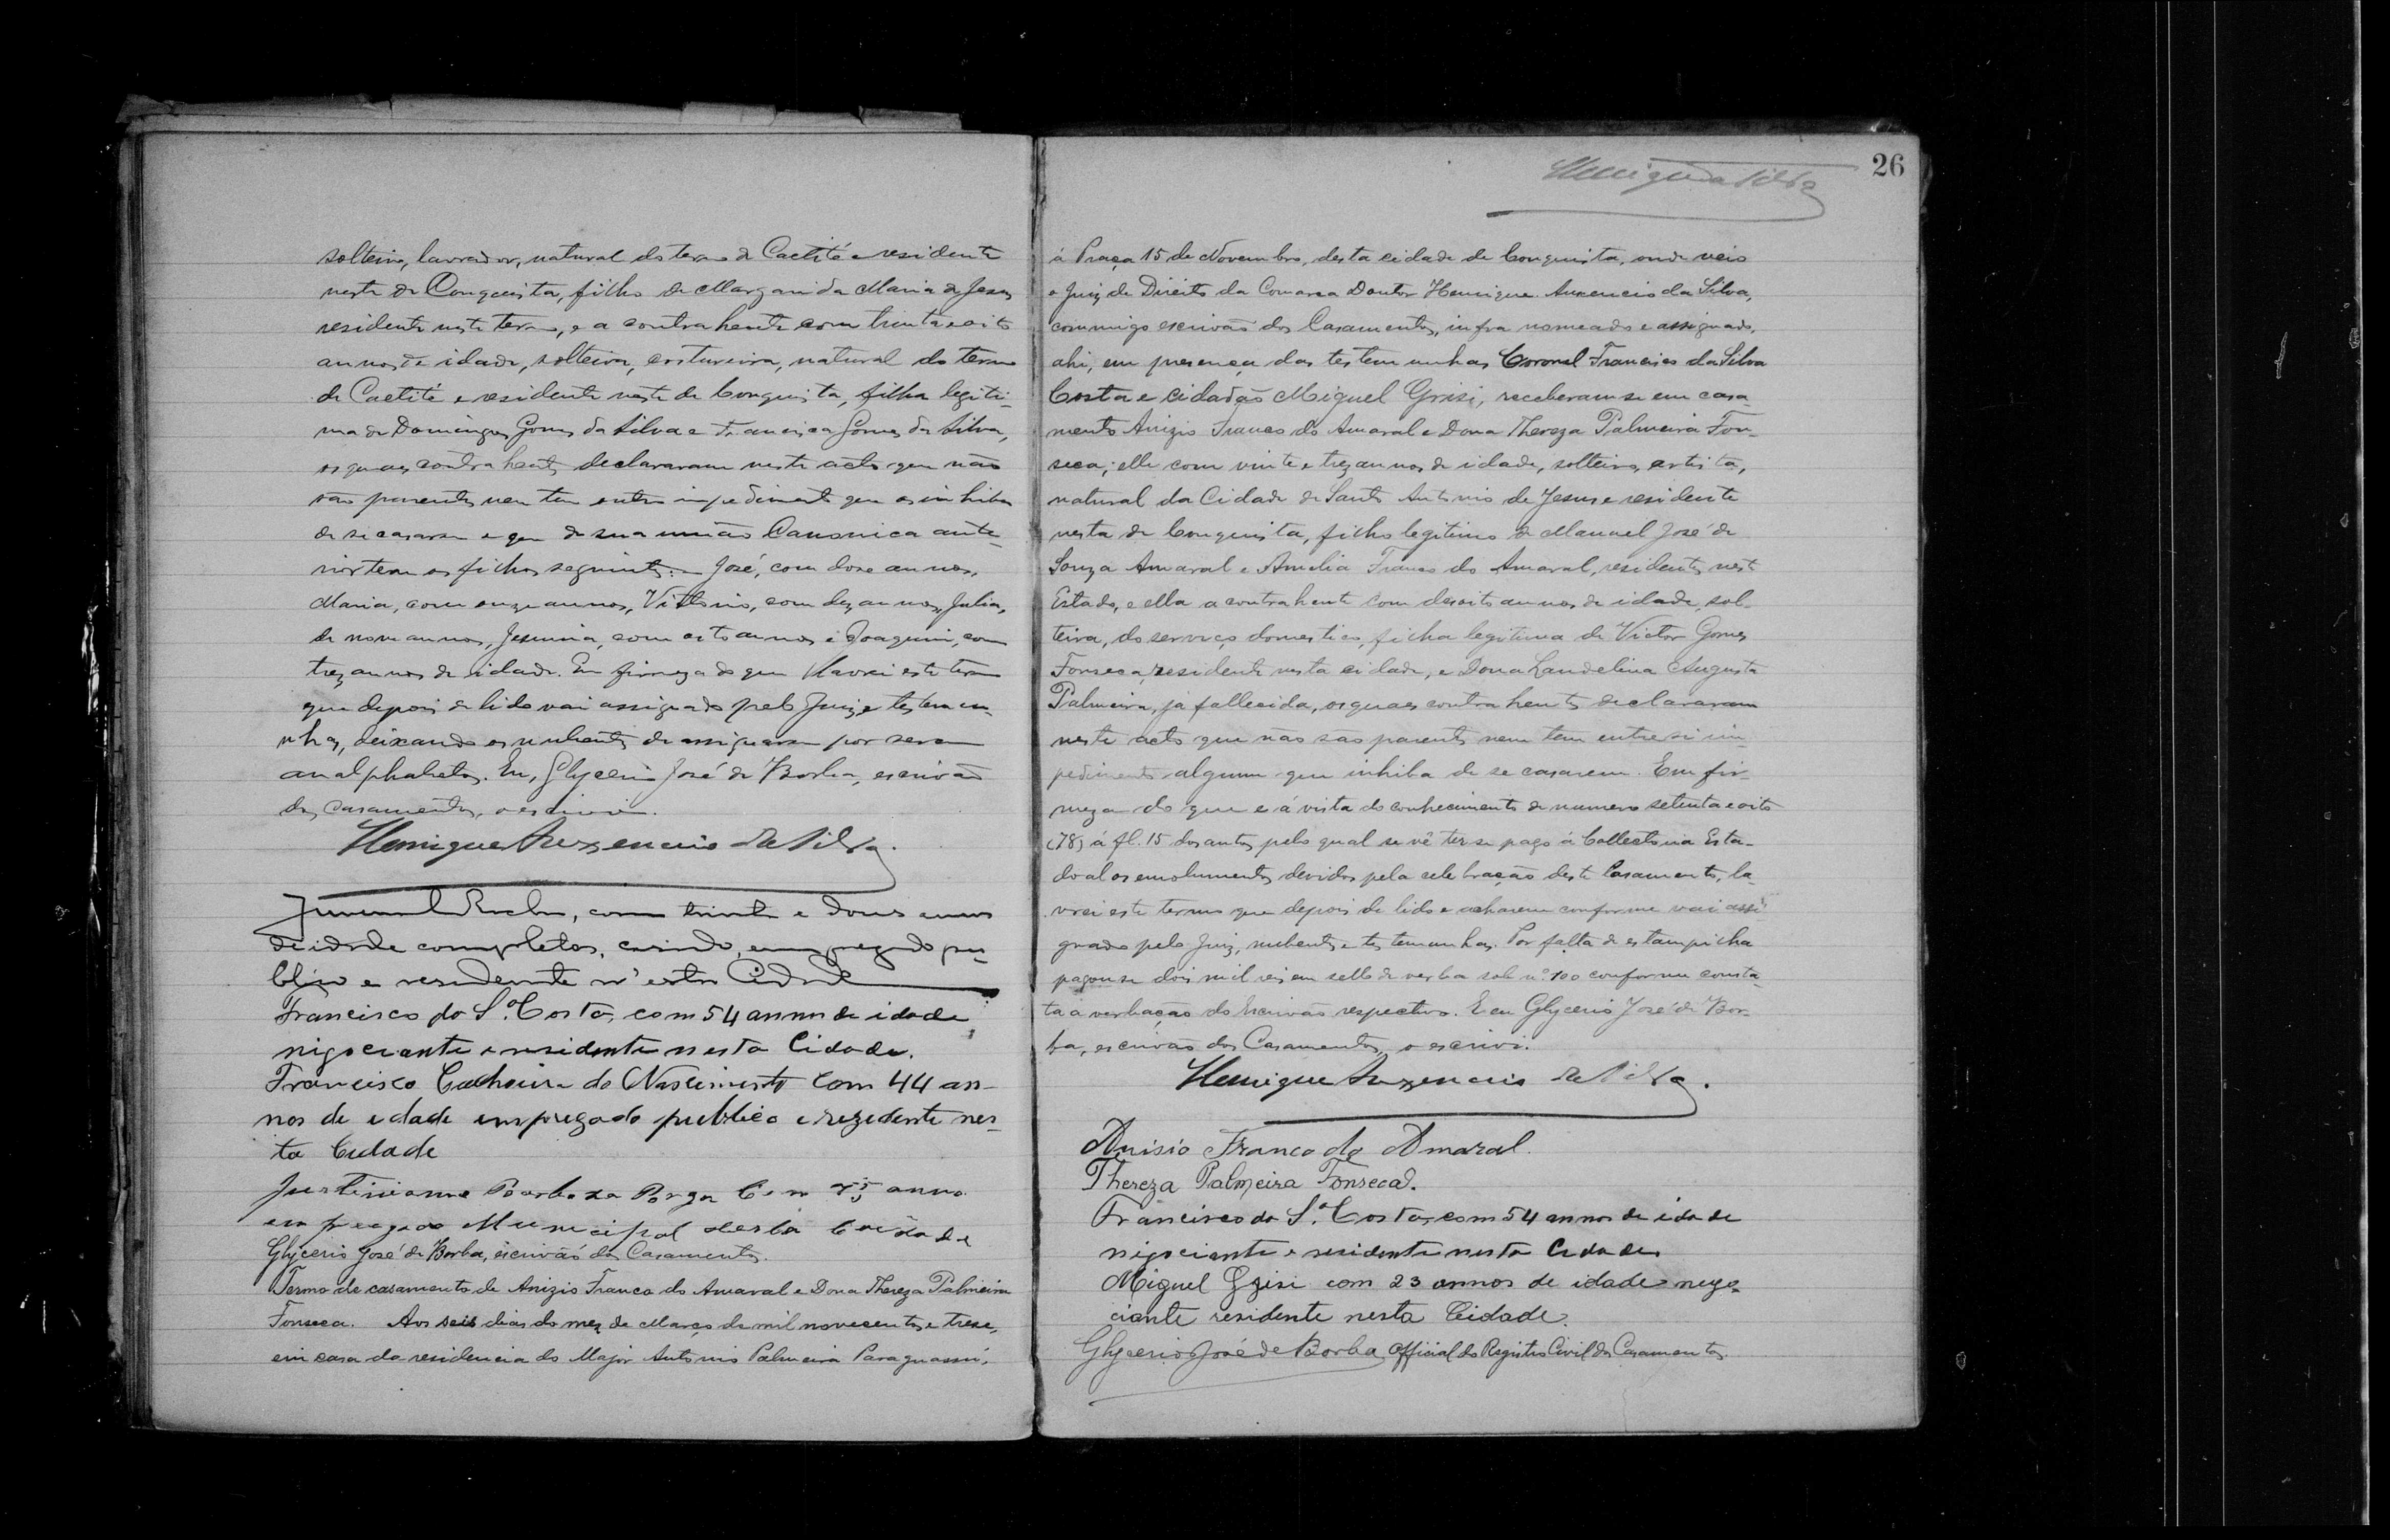 solteiro, lavrador, natural do termo de Caetité e residente
neste de Conquista, filho de Margarida Maria de Jesus
residente neste termo, e a contrahente com trinta e oito
annos de idade, solteira, costureira, natural do termo
de Caetité e residente neste de Conquista, filha legiti-
ma de Domingos Gomes da Silva e Francisca Gomes da Silva,
os quaes contrahentes declararam neste acto que não
são parentes nem tem entre impedimento que os inhiba
de se casarem e que de sua união Canonica ante-
rior tem os filhos seguintes: José, com dose annos,
Maria, com onze annos, Vittorio, com dez annos, Julia,
de nove annos, Jesuina, com oito annos e Joaquim, com
trez annos de idade. Em firmeza do que lavrei este termo
que depois de lido vai assignado pelo Juiz e testemu-
nhas, deixando os nubentes de assignarem por serem
analphabetos. Eu, Glycerio José de Borba, escrivão
dos casamentos, o escrivi.
Henrique Auxencio da Silva.
Juvenal Rocha, com trinta e dous annos
de idade completos, casado, empregado pu-
blico e residente n'esta Cidade
Francisco da S.ª Costa, com 54 annos de idade
nigociante e residente nesta Cidade.
Francisco Cachoeira do Nascimento com 44 an-
nos de edade empregado publico e rezedente nes-
ta Cidade
Justiniano Barboza Com annos
empregado Municipal desta Cidade
Glycerio José de Borba, escrivão dos Casamentos.
Termo de casamento de Anizio Franco do Amaral e Dona Thereza Palmeira
Fonseca. Aos seis dias do mez de Março de mil novecentos e treze,
em casa da residencia do Major Antonio Palmeira Paraguassú,
26
Henrique da Silva
á Praça 15 de Novembro, desta cidade de Conquista, onde veio
o Juiz de Direito da Comarca Doutor Henrique Auxencio da Silva,
commigo escrivão dos Casamentos, infra nomeado e assignado,
ahi, em presença das testemunhas Coronel Francisco da Silva
Costa e cidadão Miguel Grisi, receberam-se em casa-
mento Anizio Franco do Amaral e Dona Thereza Palmeira Fon-
seca; elle com vinte e trez annos de idade, solteiro, artista,
natural da Cidade de Santo Antonio de Jesus e residente
nesta de Conquista, filho legitimo de Manuel José de
Souza Amaral e Amelia Franco do Amaral, residentes neste
Estado, e ella a contrahente com desoito annos de idade, sol-
teira, do serviço domestico, filha legitima de Victor Gomes
Fonseca, residente nesta cidade, e Dona Laudelina Augusta
Palmeira, já fallecida, os quaes contrahentes declararam
neste acto que não são parentes nem tem entre si im-
pedimento algum que inhiba de se casarem. Em fir-
meza do que e á vista do conhecimento de numero setenta e oito
(78) á fl. 15 dos autos pelo qual se vê ter-se pago á Collectoria Esta-
doal os emolumentos devidos pela celebração deste Casamento, la-
vrei este termo que depois de lido e acharem conforme vai assi-
gnado pelo Juiz, nubentes e testemunhas. Por falta de estampilha
pagou-se dois mil reis em sello de verba sob nº 100 conforme consta-
ta a verbação do Escrivão respectivo. E eu Glycerio José de Bor-
ba, escrivão dos Casamentos, o escrivi.
Henrique Auxencio da Silva.
Anisio Franco do Amaral.
Thereza Palmeira Fonseca.
Francisco da S.ª Costa, com 54 annos de idade
nigociante e residente nesta Cidade
Miguel Grisi com 23 annos de idade nego-
ciante residente nesta Cidade.
Glycerio José de Borba, Official do Registro Civil dos Casamentos.